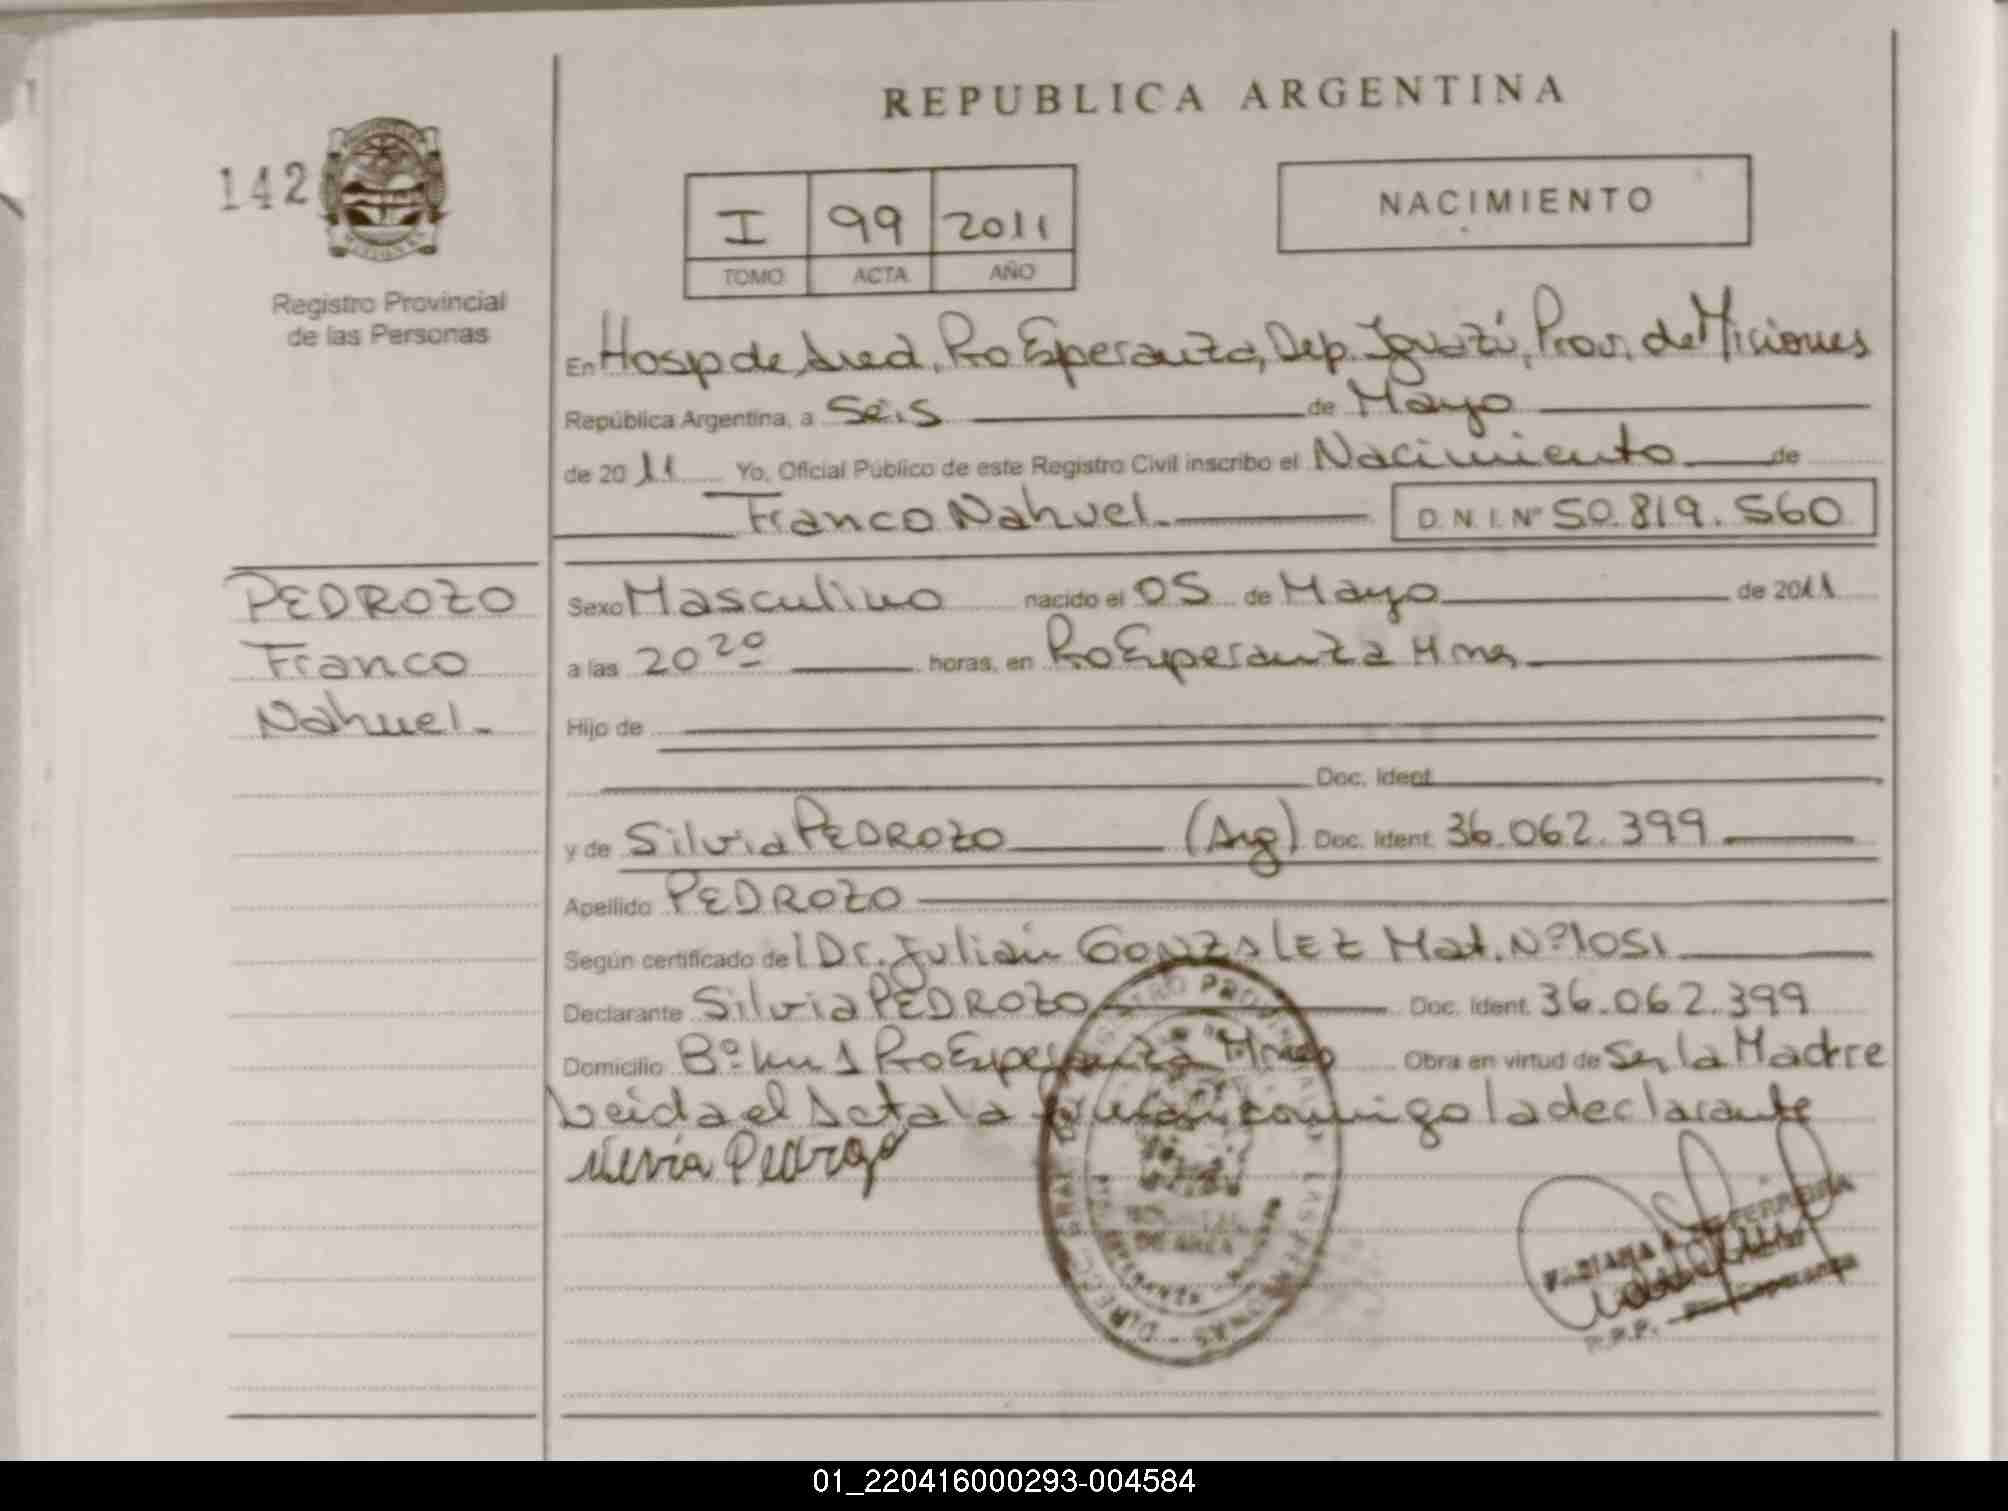 REPUBLICA ARGENTINA
142
I 99 2011
TOMO ACTA AÑO
NACIMIENTO
Registro Provincial
de las Personas
En Hosp de Area, Pto Esperanza, Dep. Iguazú, Prov. de Miciones
República Argentina, a Seis de Mayo
de 2011 Yo, Oficial Público de este Registro Civil inscribo el Nacimiento de
Franco Nahuel. D.N.I. Nº 50.819.560
PEDROZO
Franco
Nahuel.
Sexo Masculino nacido el 05 de Mayo de 2011
a las 20 20 horas, en Pto Esperanza Mnes
Hijo de
Doc. Ident.
y de Silvia PEDROZO (Arg) Doc. Ident. 36.062.399
Apellido PEDROZO
Según certificado del Dr. Julián GONZALEZ Mat. Nº 1051
Declarante Silvia PEDROZO Doc. Ident. 36.062.399
Domicilio Bº Km 1 Pto Esperanza Mnes Obra en virtud de Ser la Madre
Leida el Acta la firman comigo la declarante
Pedrozo
REGISTRO PROVINCIAL DE LAS PERSONAS
DE AREA
FERREIRA
R.P.P.
01_220416000293-004584